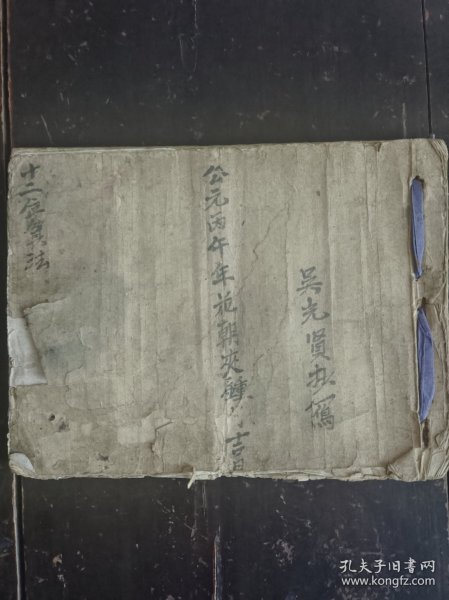 吴先賢抄寫
公元丙午年花朝夾鍾月吉日
十二位算法
孔夫子旧书网
www.kongfz.com